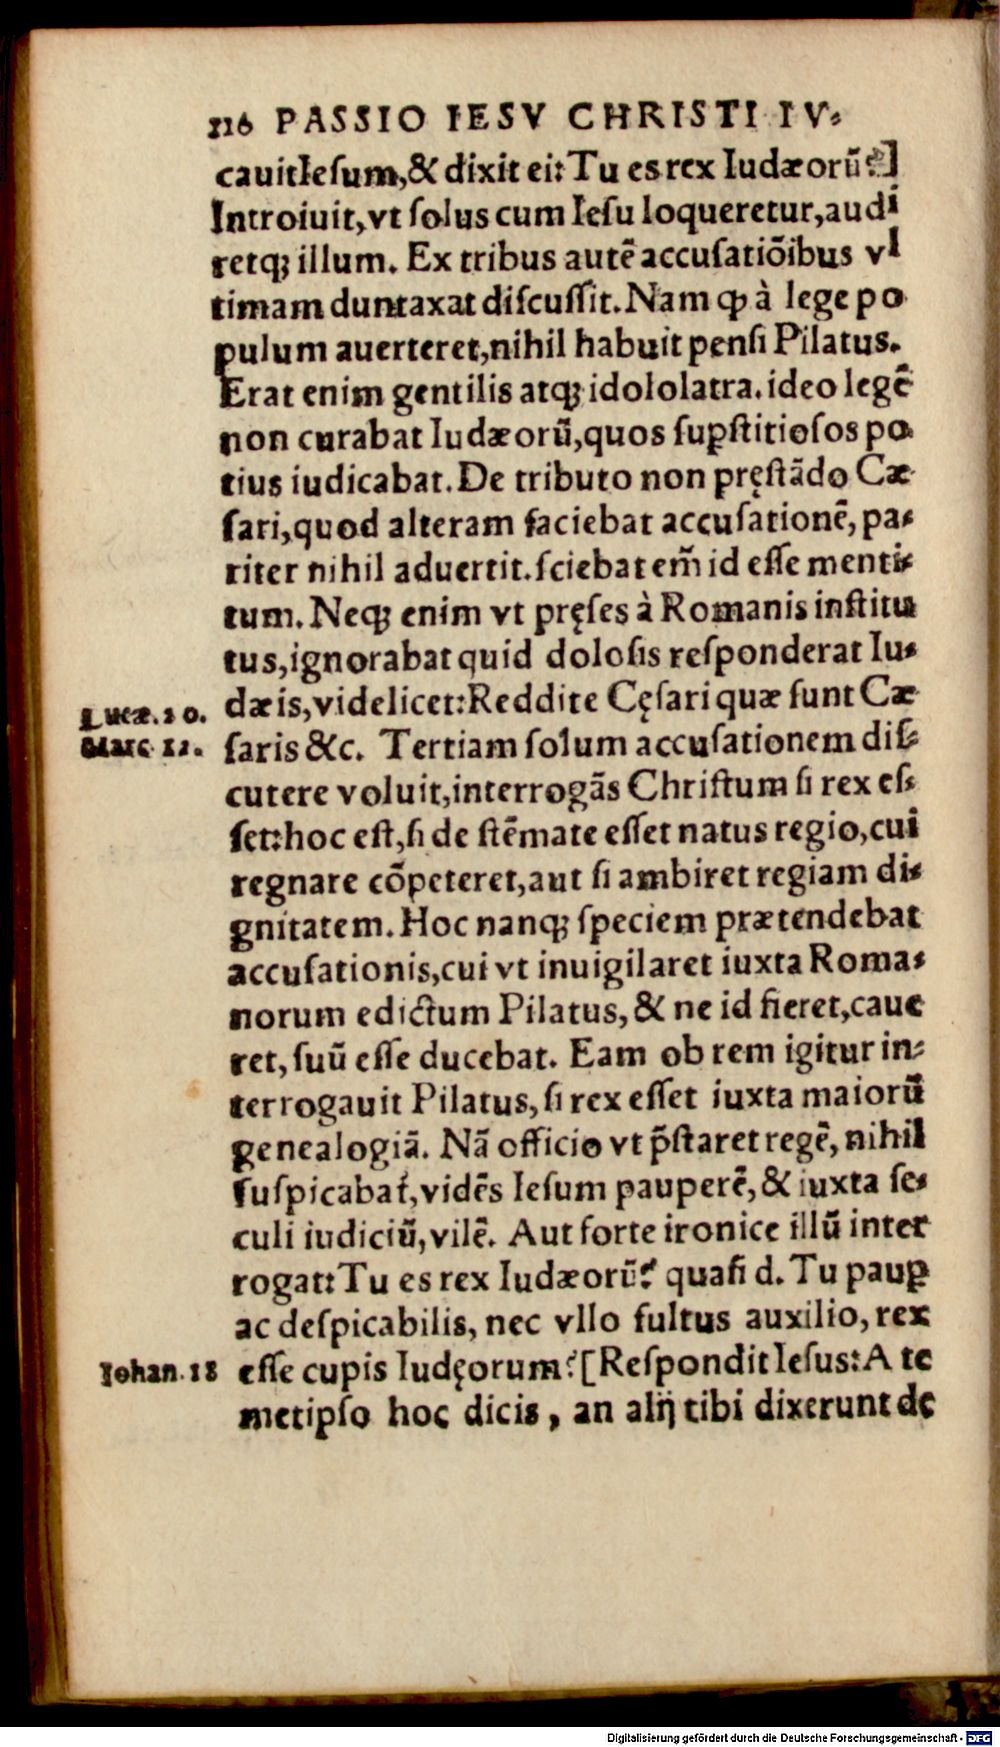 116 PASSIO IESV CHRISTI IV⸗
cauit Iesum, & dixit ei: Tu es rex Iudæorũ?]
Introiuit, vt ſolus cum Ieſu loqueretur, audi
retq́; illum. Ex tribus autẽ accuſatiõibus vl
timam duntaxat diſcuſſit. Nam ꝙ à lege po
pulum auerteret, nihil habuit penſi Pilatus.
Erat enim gentilis atq; idololatra. ideo legẽ
non curabat Iudæorũ, quos suꝑſtitioſos po
tius iudicabat. De tributo non pręſtãdo Cæ
ſari, quod alteram faciebat accuſationẽ, pa⸗
riter nihil aduertit. ſciebat em̃ id eſſe menti⸗
tum. Neq; enim vt pręſes à Romanis inſtitu
tus, ignorabat quid dolosis reſponderat Iu⸗
Lucæ. 20. dæis, videlicet: Reddite Cęſari quæ ſunt Cæ
Marc 12. ſaris &c. Tertiam ſolum accuſationem diſ⸗
cutere voluit, interrogãs Chriſtum ſi rex eſ⸗
ſet: hoc eſt, ſi de ſtẽmate eſſet natus regio, cui
regnare cõpeteret, aut ſi ambiret regiam di⸗
gnitatem. Hoc nanq; ſpeciem prætendebat
accuſationis, cui vt inuigilaret iuxta Roma⸗
norum edictum Pilatus, & ne id fieret, caue
ret, ſuũ eſſe ducebat. Eam ob rem igitur in⸗
terrogauit Pilatus, ſi rex eſſet iuxta maiorũ
genealogiã. Nã officio vt p̃ſtaret regẽ, nihil
ſuſpicabať, vidẽs Ieſum pauperẽ, & iuxta ſe⸗
culi iudiciũ, vilẽ. Aut forte ironice illũ inter
rogat: Tu es rex Iudæorũ? quaſi d. Tu pauꝑ
ac deſpicabilis, nec vllo fultus auxilio, rex
Iohan. 18 eſſe cupis Iudęorum? [Reſpondit Ieſus: A te
metipſo hoc dicis, an alij tibi dixerunt de
Digitalisierung gefördert durch die Deutsche Forschungsgemeinschaft - DFG